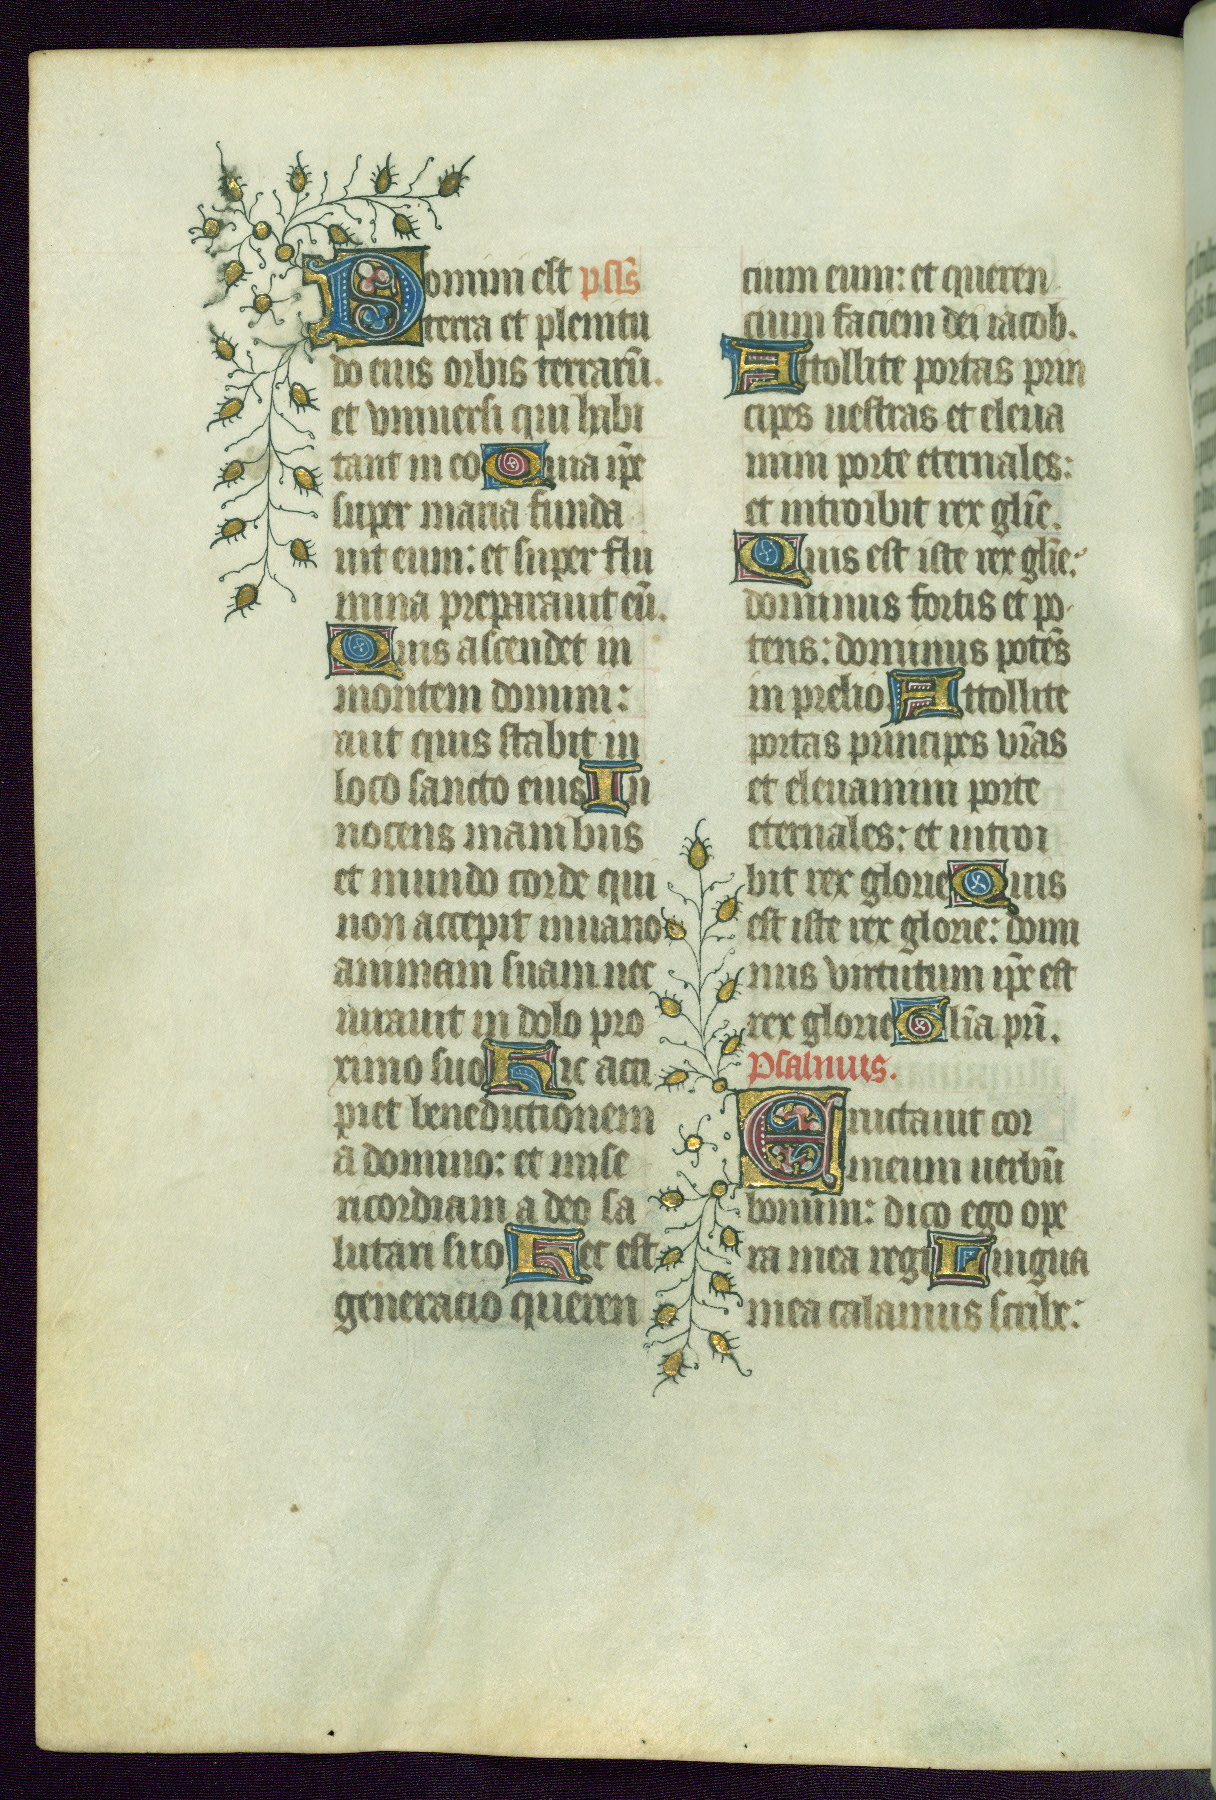 Domini est ps̄s
terra et plenitu
do eius orbis terrarū.
et vniuersi qui habi
tant in eo Quia ip̄e
super maria funda
uit eum: et super flu
mina preparauit eū.
Quis ascendet in
montem domini:
aut quis stabit in
loco sancto eius In
nocens manibus
et mundo corde qui
non accepit in uano
animam suam nec
iurauit in dolo pro
ximo suo Hic acci
piet benedictionem
a domino: et mise
ricordiam a deo sa
lutari suo Hec est
generacio queren
cium eum: et queren
cium faciem dei iacob.
Attollite portas prin
cipes uestras et eleua
mini porte eternales:
et introibit rex glīe.
Quis est iste rex glīe:
dominus fortis et po
tens: dominus potēs
in prelio Attollite
portas principes vr̄as
et eleuamini porte
eternales: et introi
bit rex glorie Quis
est iste rex glorie: domi
nus virtutum ip̄e est
rex glorie Glīa pr̄i.
Psalmus.
Eructauit cor
meum uerbū
bonum: dico ego ope
ra mea regi Lingua
mea calamus scribe: